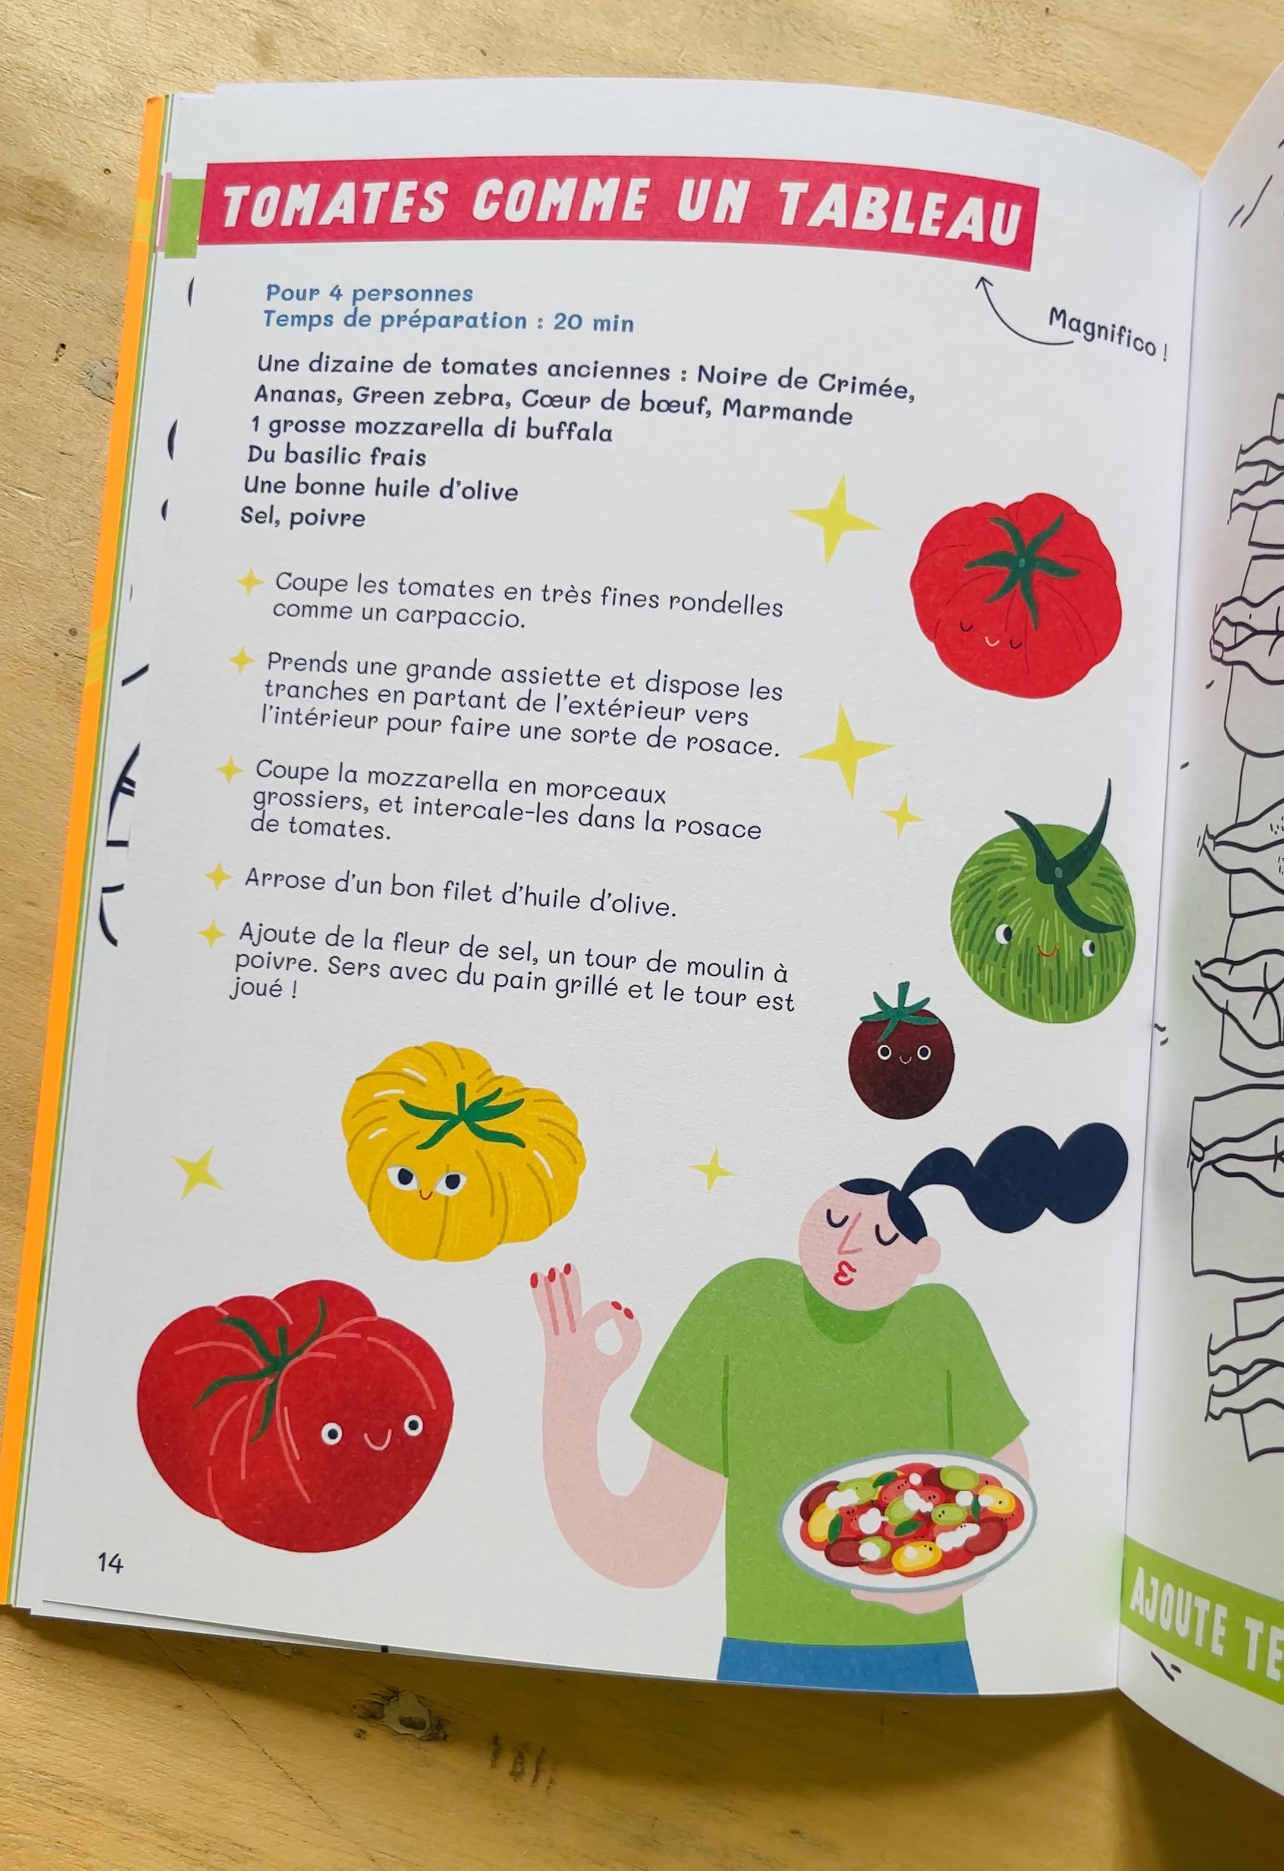 TOMATES COMME UN TABLEAU
Magnifico !
Pour 4 personnes
Temps de préparation : 20 min
Une dizaine de tomates anciennes : Noire de Crimée,
Ananas, Green zebra, Cœur de bœuf, Marmande
1 grosse mozzarella di buffala
Du basilic frais
Une bonne huile d'olive
Sel, poivre
Coupe les tomates en très fines rondelles
comme un carpaccio.
Prends une grande assiette et dispose les
tranches en partant de l'extérieur vers
l'intérieur pour faire une sorte de rosace.
Coupe la mozzarella en morceaux
grossiers, et intercale-les dans la rosace
de tomates.
Arrose d'un bon filet d'huile d'olive.
Ajoute de la fleur de sel, un tour de moulin à
poivre. Sers avec du pain grillé et le tour est
joué !
14
AJOUTE TE